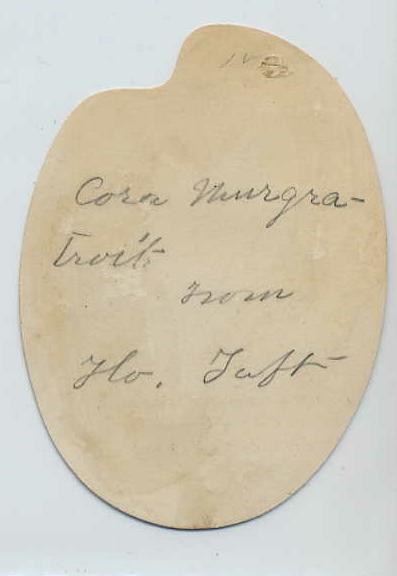 Cora Murgra-
Troit
from
Flo. Taft